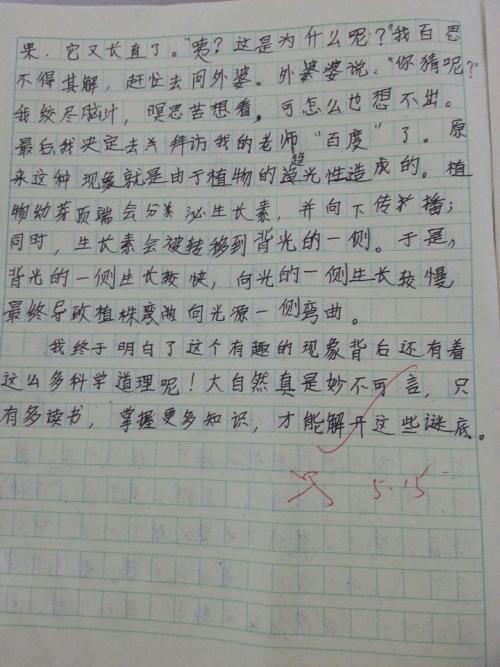 果,它又长直了。"咦?这是为什么呢?"我百思
不得其解,赶忙去问外婆。外婆婆说:"你猜呢?"
我绞尽脑汁,冥思苦想着,可怎么也想不出。
最后我决定去拜访我的老师"百度"了。原
来这种现象就是由于植物的趋光性造成的。植
物幼芽顶端会分泌生长素,并向下传播;
同时,生长素会被转移到背光的一侧。于是,
背光的一侧生长较快,向光的一侧生长较慢,
最终导致植株向光源一侧弯曲。
我终于明白了这个有趣的现象背后还有着
这么多科学道理呢!大自然真是妙不可言,只
有多读书,掌握更多知识,才能解开这些谜底。
5.15